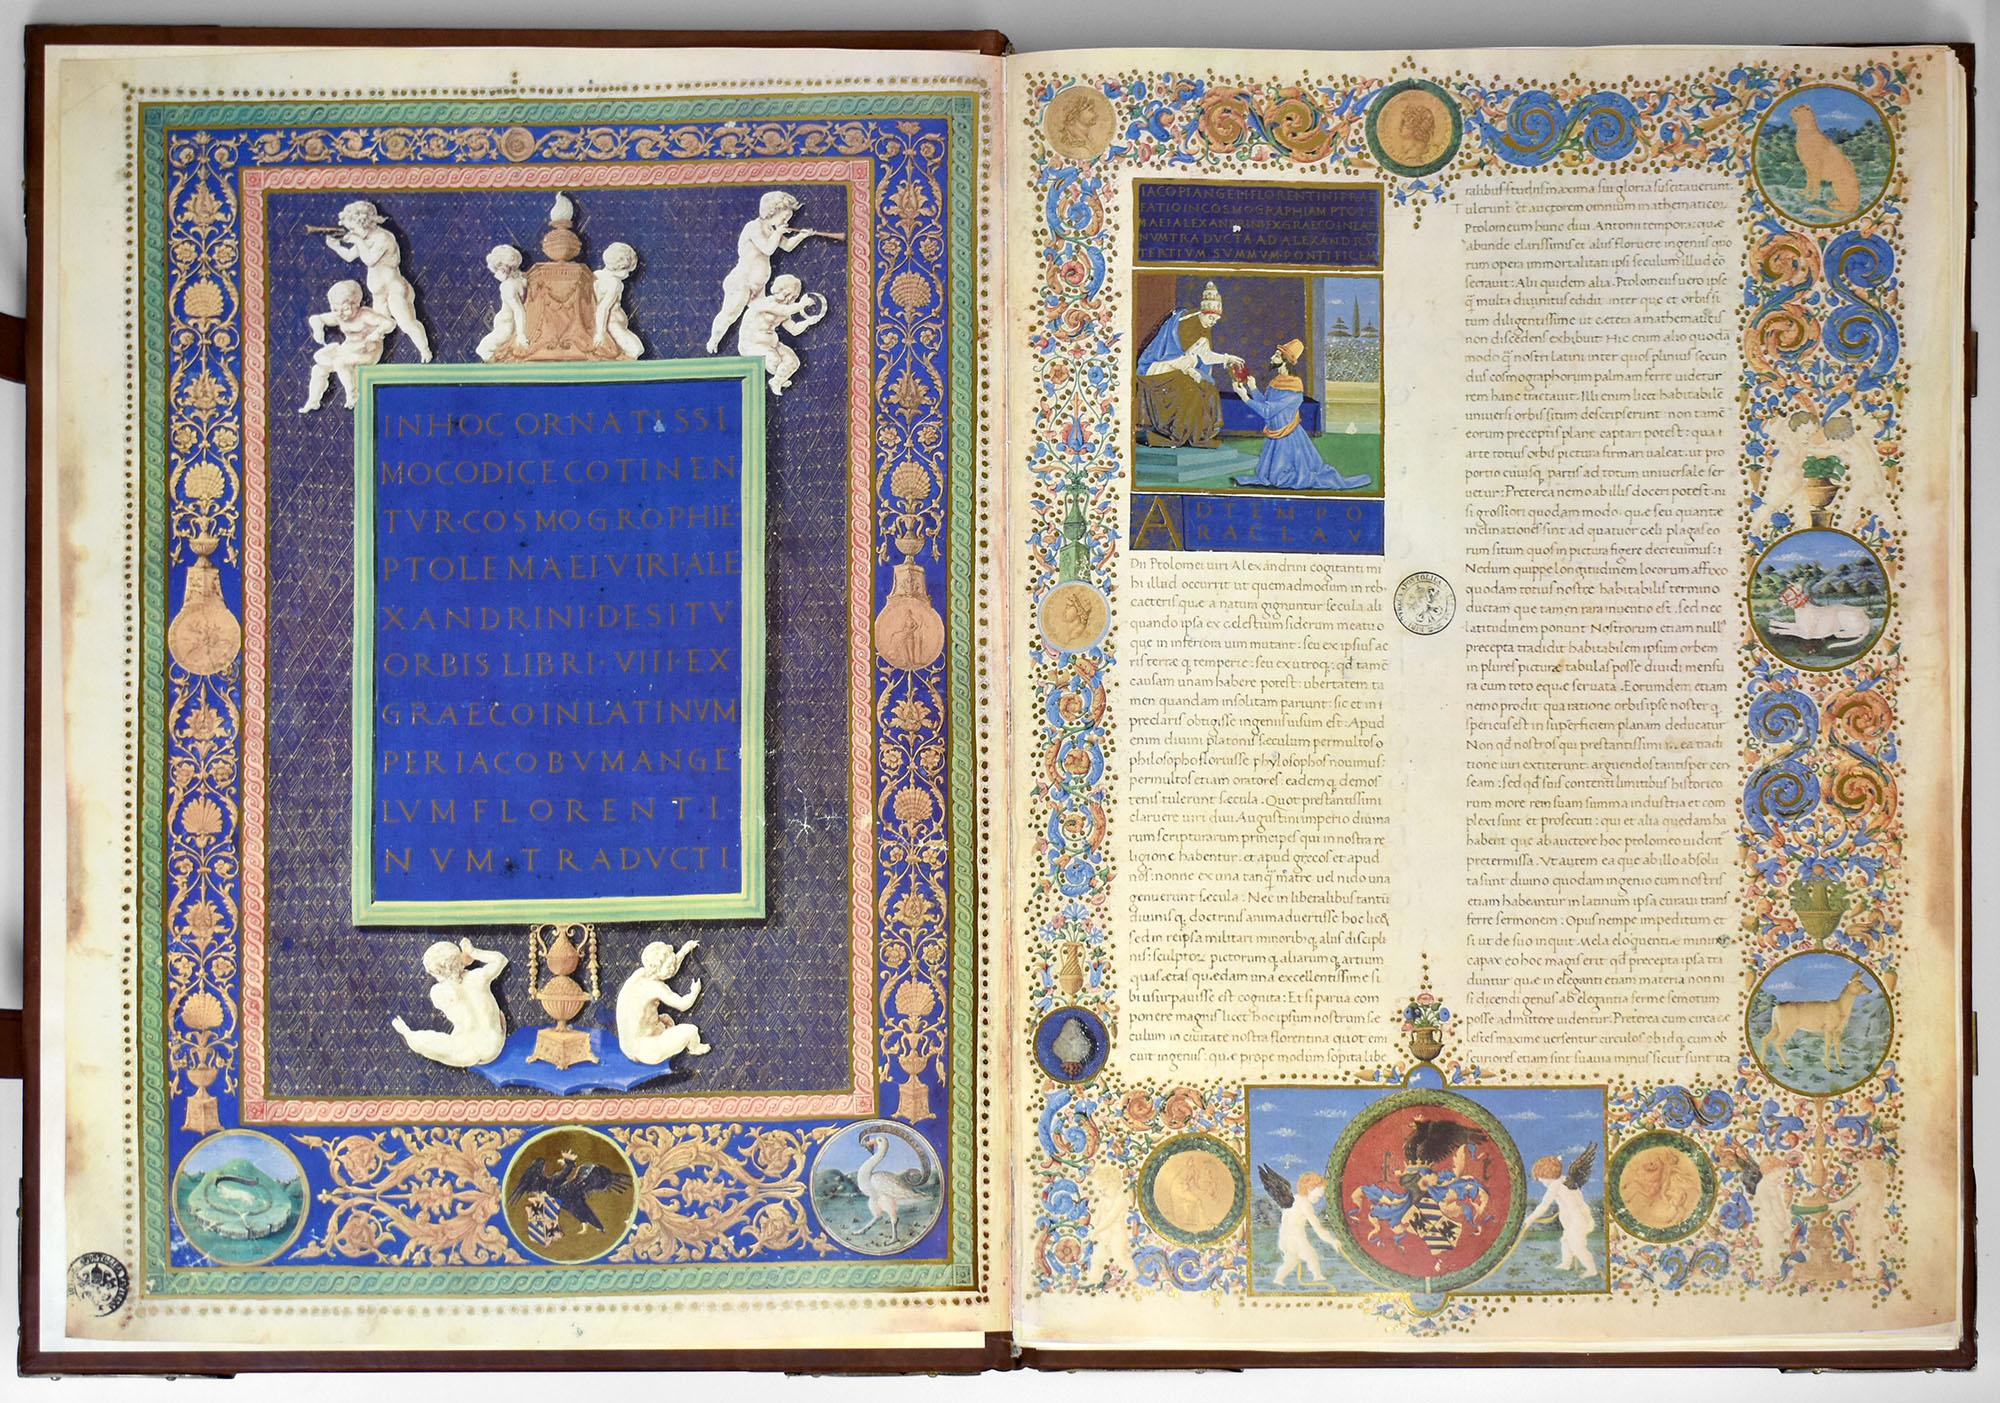 INHOC ORNATISSI
MOCODICECOTINEN
TVR·COSMOGROPHIE·
PTOLEMAEIVIRI·ALE
XANDRINI·DESITV
ORBIS LIBRI·VIII·EX
GRAECOINLATINVM
PERIACOBVMANGE
LVMFLORENTI·
NVM·TRADVCTI
IACOPIANGELIFLORENTINIPRAE
FATIOINCOSMOGRAPHIAMPTOLE
MAEIALEXANDRINIEXGRAECOINLATI
NVMTRADVCTAADALEXANDRV
TERTIVM·SVMMVM·PONTIFICEM
ADTEMPO
RACLAV
Dii Ptolomei uiri Alexandrini cogitanti mi
hi illud occurrit ut quemadmodum in reb
cæteris quæ a natura gignuntur sæcula ali
quando ipsa ex cælestium siderum meatu o
que in inferiora uim mutant: seu ex ipsius ae
ris terræq temperie: seu ex utroq: qd tamē
causam unam habere potest: ubertatem ta
men quandam insolitam pariunt: sic et in i
preclaris obtigisse ingeniis uisum est: Apud
enim diuini platonis sæculum permultos o
philosopho floruisse phylosophos nouimus:
permultos etiam oratores: eadem q demos
tenis tulerunt sæcula. Quot prestantissimi
claruere uiri diui Augustini imperio diuina
rum scripturarum principes qui in nostra re
ligione habentur. et apud græcos et apud
nos: nonne ex una tanq̄ matre uel nido una
genuerunt sæcula: Nec in liberalibus tantū
diuinisq doctrinis animaduertisse hoc licȝ
sed in reipsa militari minoribusq aliis discipli
nis: sculptorz pictorum q aliarum q artium
quas ætas quædam una excellentissime si
bi usurpauisse est cognita: Et si parua com
ponere magnis licet hoc ipsum nostrum sæ
culum in ciuitate nostra florentina quot emi
cuit ingeniis: quæ prope modum sopita libe
ralibus studiis maxima sui gloria suscitauerunt.
Tulerunt et auctorem omnium mathematicoȝ
Ptolomeum hunc diui Antonii tempora: quæ
abunde clarissimis et aliis floruere ingeniis quo
rum opera immortalitati ipsi seculum illud cō
secrauit: Alii quidem alia. Ptolomeus uero ipse
q̄ multa diuinitus edidit inter que et orbis si
tum diligentissime ut cætera a mathematicis
non discedens exhibuit: Hic enim alio quodā
modo q̄ nostri latini inter quos plinius secun
dus cosmographorum palmam ferre uidetur
rem hanc tractauit: Illi enim licet habitabile
uniuersi orbis situm descripserunt: non tamē
eorum preceptis plane captari potest: qua i
arte totius orbis pictura firmari ualeat: ut pro
portio cuiusq partis ad totum uniuersale ser
uetur: Preterea nemo ab illis doceri potest: ni
si grossiori quodam modo: quæ seu quantæ
inclinationes sint ad quatuor cæli plagas eo
rum situm quos in pictura figere decreuimus: i
Nedum quippe longitudinem locorum affixo
quodam totius nostræ habitabilis termino
ductam que tamen rara inuentio est: sed nec
latitudinem ponunt Nostrorum etiam null9
precepta tradidit habitabilem ipsum orbem
in plures picturæ tabulas posse diuidi mensu
ra cum toto eque seruata. Eorumdem etiam
nemo prodit qua ratione orbis ipse noster q
spericus est in superficiem planam deducatur
Non qd nostros qui prestantissimi r. ea tradi
tione uiri extiterunt: arguendos tantisper cen
seam: sed qd suis contenti limitibus historico
rum more rem suam summa industria et com
plexi sunt et prosecuti: qui et alia quedam ha
habent que ab auctore hoc ptolomeo uident
pretermissa. Ut autem ea que ab illo absolu
ta sunt diuino quodam ingenio cum nostris
etiam habeantur in latinum ipsa curaui transf
ferre sermonem: Opus nempe impeditum et
si ut de suo inquit Mela eloquentiæ minime
capax eo hoc magis erit qd precepta ipsa tra
duntur quæ in eleganti etiam materia non ni
si dicendi genus ab elegantia ferme semotum
posse admittere uidentur: Preterea cum circa cæ
lestes maxime uersentur circulos ob idq cum ob
scuriores etiam sint suauia minus sicut sunt ita